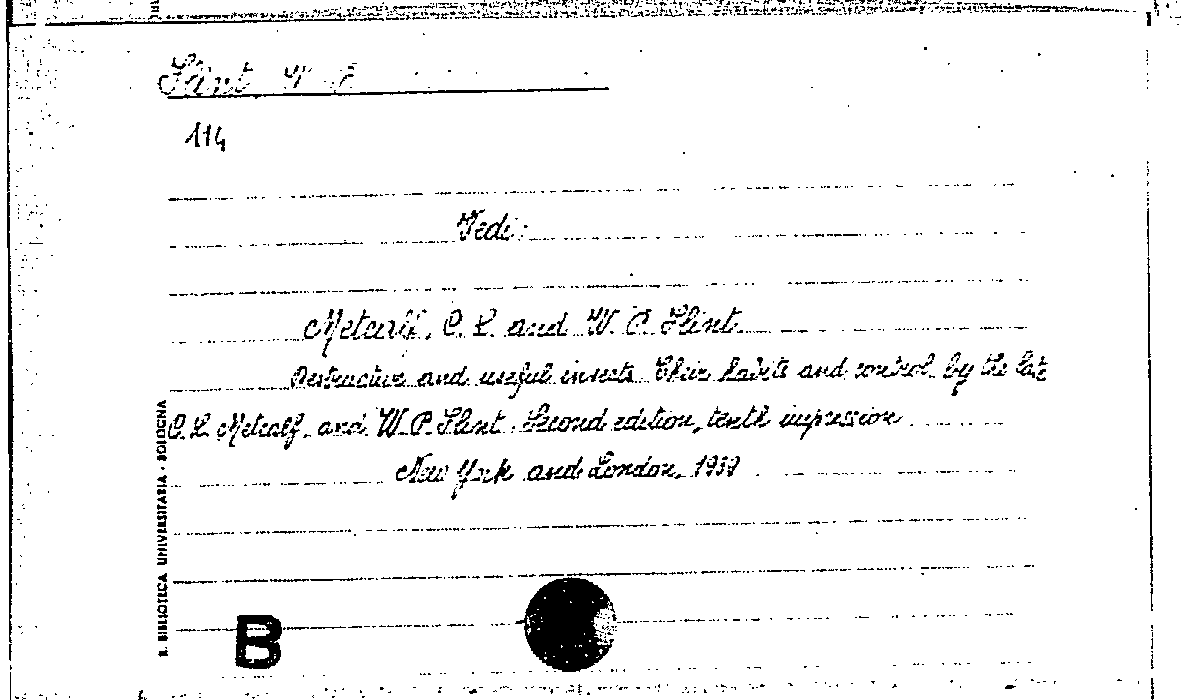 Flint W. P.
114
Vedi:
Metcalf, C. L. and W. P. Flint
Destructive and useful insects. Their habits and control by the late
C. L. Metcalf, and W. P. Flint. Second edition, tenth impression
New York and London, 1939
R. BIBLIOTECA UNIVERSITARIA - BOLOGNA
B